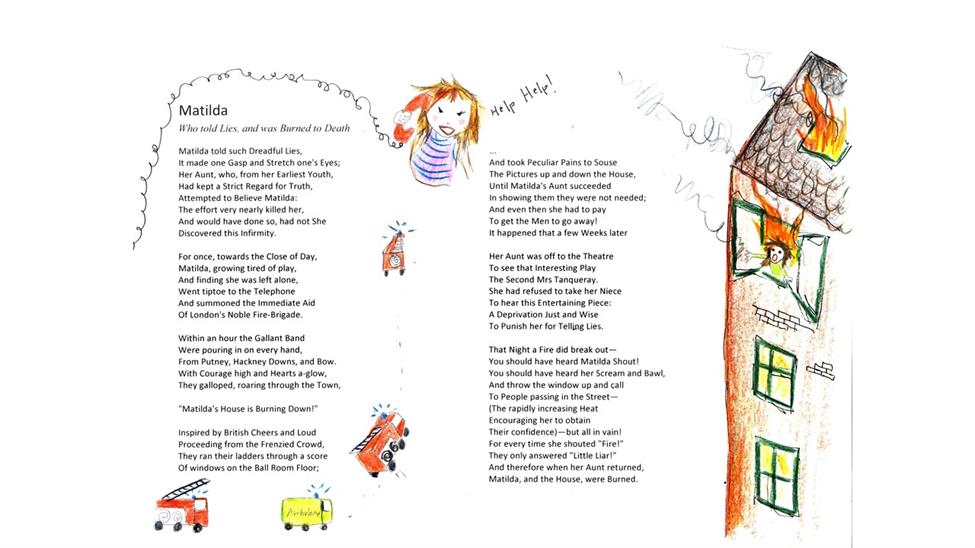 Matilda
Who told Lies, and was Burned to Death
Matilda told such Dreadful Lies,
It made one Gasp and Stretch one's Eyes;
Her Aunt, who, from her Earliest Youth,
Had kept a Strict Regard for Truth,
Attempted to Believe Matilda:
The effort very nearly killed her,
And would have done so, had not She
Discovered this Infirmity.
For once, towards the Close of Day,
Matilda, growing tired of play,
And finding she was left alone,
Went tiptoe to the Telephone
And summoned the Immediate Aid
Of London's Noble Fire-Brigade.
Within an hour the Gallant Band
Were pouring in on every hand,
From Putney, Hackney Downs, and Bow.
With Courage high and Hearts a-glow,
They galloped, roaring through the Town,
"Matilda's House is Burning Down!"
Inspired by British Cheers and Loud
Proceeding from the Frenzied Crowd,
They ran their ladders through a score
Of windows on the Ball Room Floor;
Help Help!
...
And took Peculiar Pains to Souse
The Pictures up and down the House,
Until Matilda's Aunt succeeded
In showing them they were not needed;
And even then she had to pay
To get the Men to go away!
It happened that a few Weeks later
Her Aunt was off to the Theatre
To see that Interesting Play
The Second Mrs Tanqueray.
She had refused to take her Niece
To hear this Entertaining Piece:
A Deprivation Just and Wise
To Punish her for Telling Lies.
That Night a Fire did break out—
You should have heard Matilda Shout!
You should have heard her Scream and Bawl,
And throw the window up and call
To People passing in the Street—
(The rapidly increasing Heat
Encouraging her to obtain
Their confidence)—but all in vain!
For every time she shouted "Fire!"
They only answered "Little Liar!"
And therefore when her Aunt returned,
Matilda, and the House, were Burned.